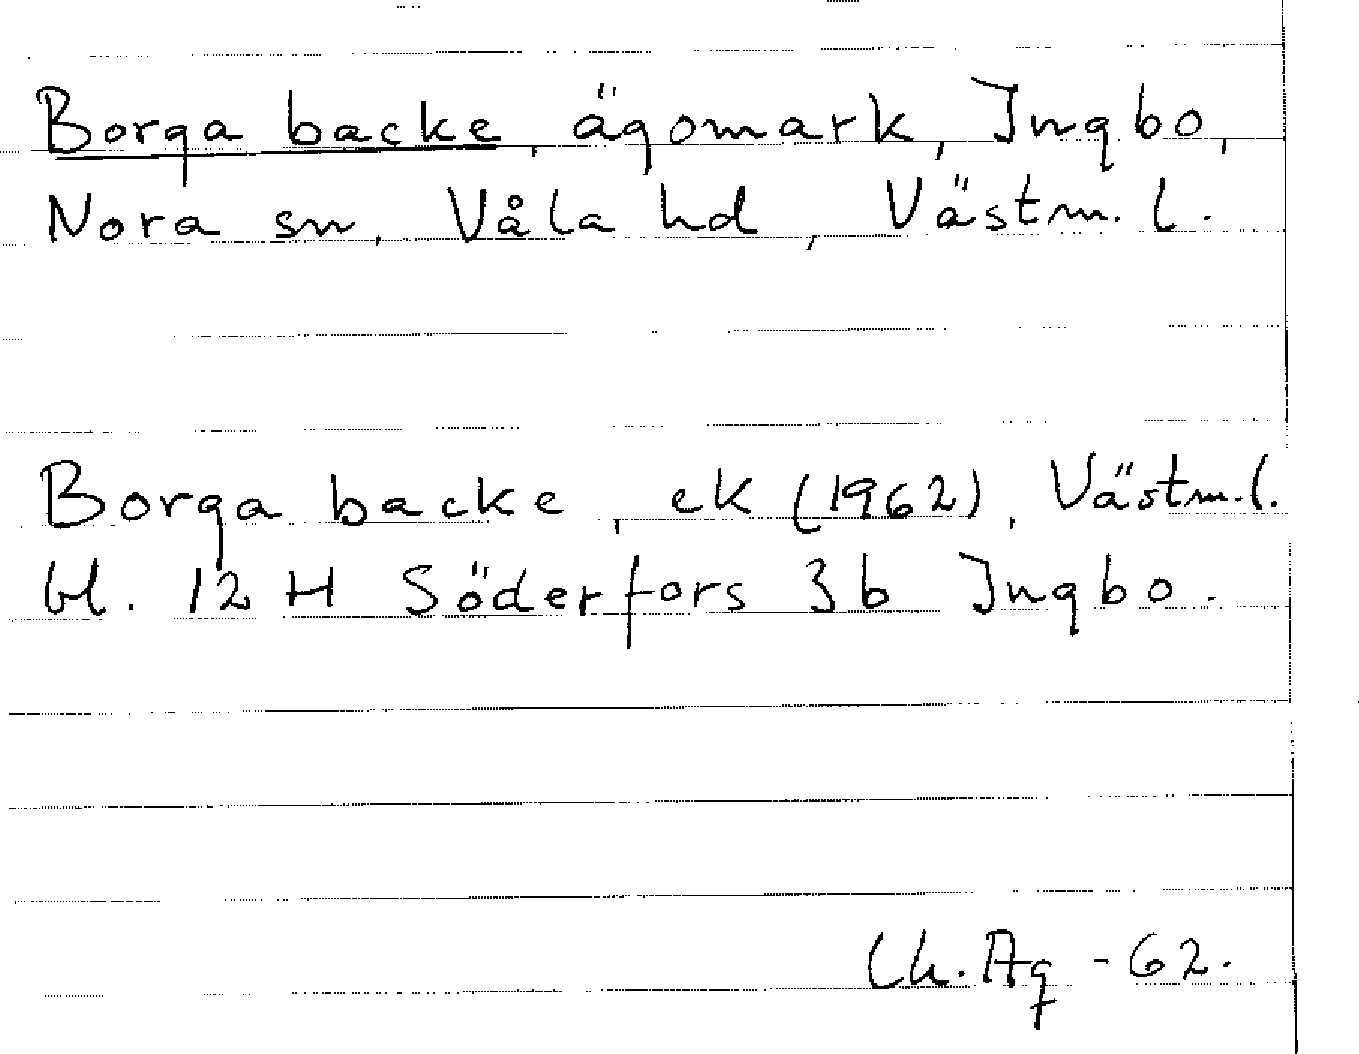 Borga backe, ägomark, Ingbo,
Nora sn, Våla hd, Västm. l.
Borga backe, ek (1962), Västm. l.
bl. 12 H Söderfors 3 b Ingbo.
Ch. Ag -62.